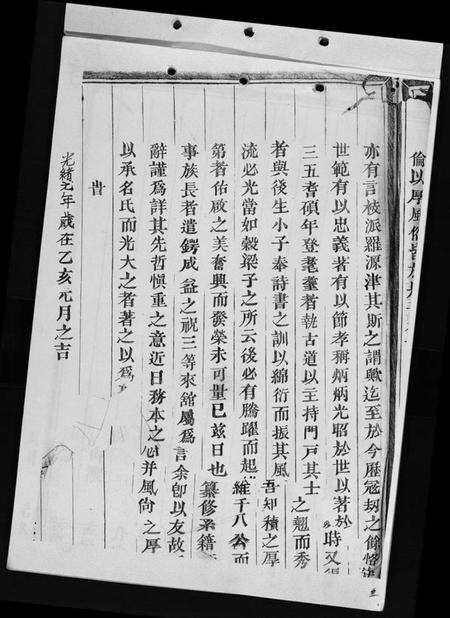 倫以厚風俗
亦有言枝派羅源津其斯之謂歟迄至於今歷冠刼之餘
世範有以忠義著有以節孝稱炳炳光昭於世以著於時又
三五耆碩年登耄耋者執古道以主持門戸其士之翹而秀
者與後生小子奉詩書之訓以綿衍而振其風吾知積之厚
流必光當如穀梁子之所云後必有騰躍而起維千八公而
第者佑啟之美奮興而發榮未可量巳玆日也纂修乎籍
事族長者遣鍔成益之祝三等來舘屬為言余卽以友故
辭謹為詳其先哲愼重之意近日務本之心并風尙之厚
以承名氏而光大之者著之以為
旹
光緒元年歲在乙亥元月之吉